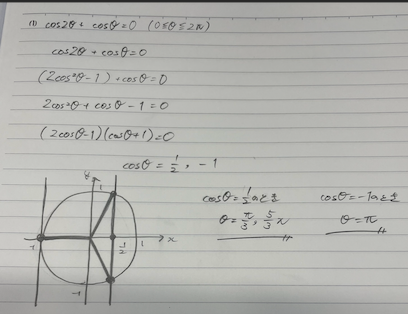 (1) cos2θ + cosθ = 0 (0≤θ≤2π)
cos2θ + cosθ = 0
(2cos²θ-1) + cosθ = 0
2cos²θ + cosθ - 1 = 0
(2cosθ-1)(cosθ+1) = 0
cosθ = 1/2, -1
y
1
-1
1/2
1
x
-1
cosθ = 1/2のとき
θ = π/3, 5/3π
cosθ = -1のとき
θ = π